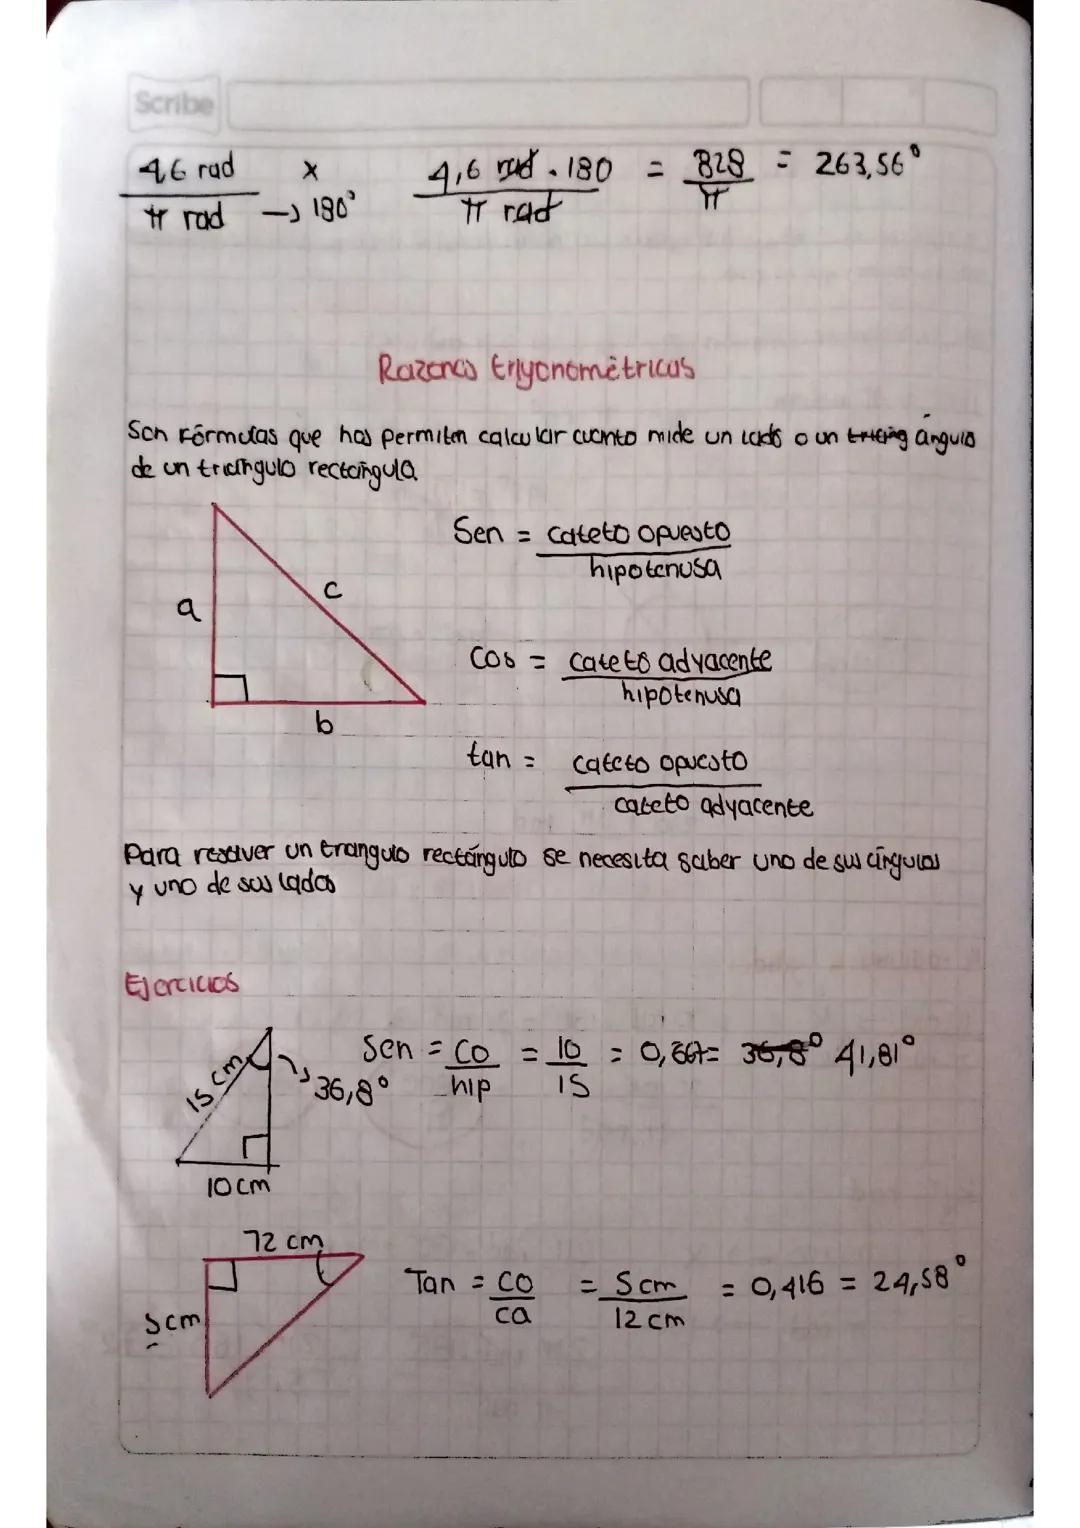 Scribe
4,6 rad x 4,6 rad . 180 = 828 = 263,56°
π rad → 180° π rad π
Razones trigonométricas
Son Fórmulas que nos permiten calcular cuanto mide un lado o un triáng ángulo
de un triángulo rectángulo
Sen = cateto opuesto
hipotenusa
a
c
Cos = cateto adyacente
hipotenusa
b
tan = cateto opuesto
cateto adyacente
Para resolver un trangulo rectángulo se necesita saber uno de sus ángulos
y uno de sus lados
Ejercicios
15 cm
36,8°
Sen = CO = 10 = 0,667= 36,8° 41,81°
hip 15
10 cm
72 cm
Tan = CO = 5 cm = 0,416 = 24,58°
ca 12 cm
5 cm